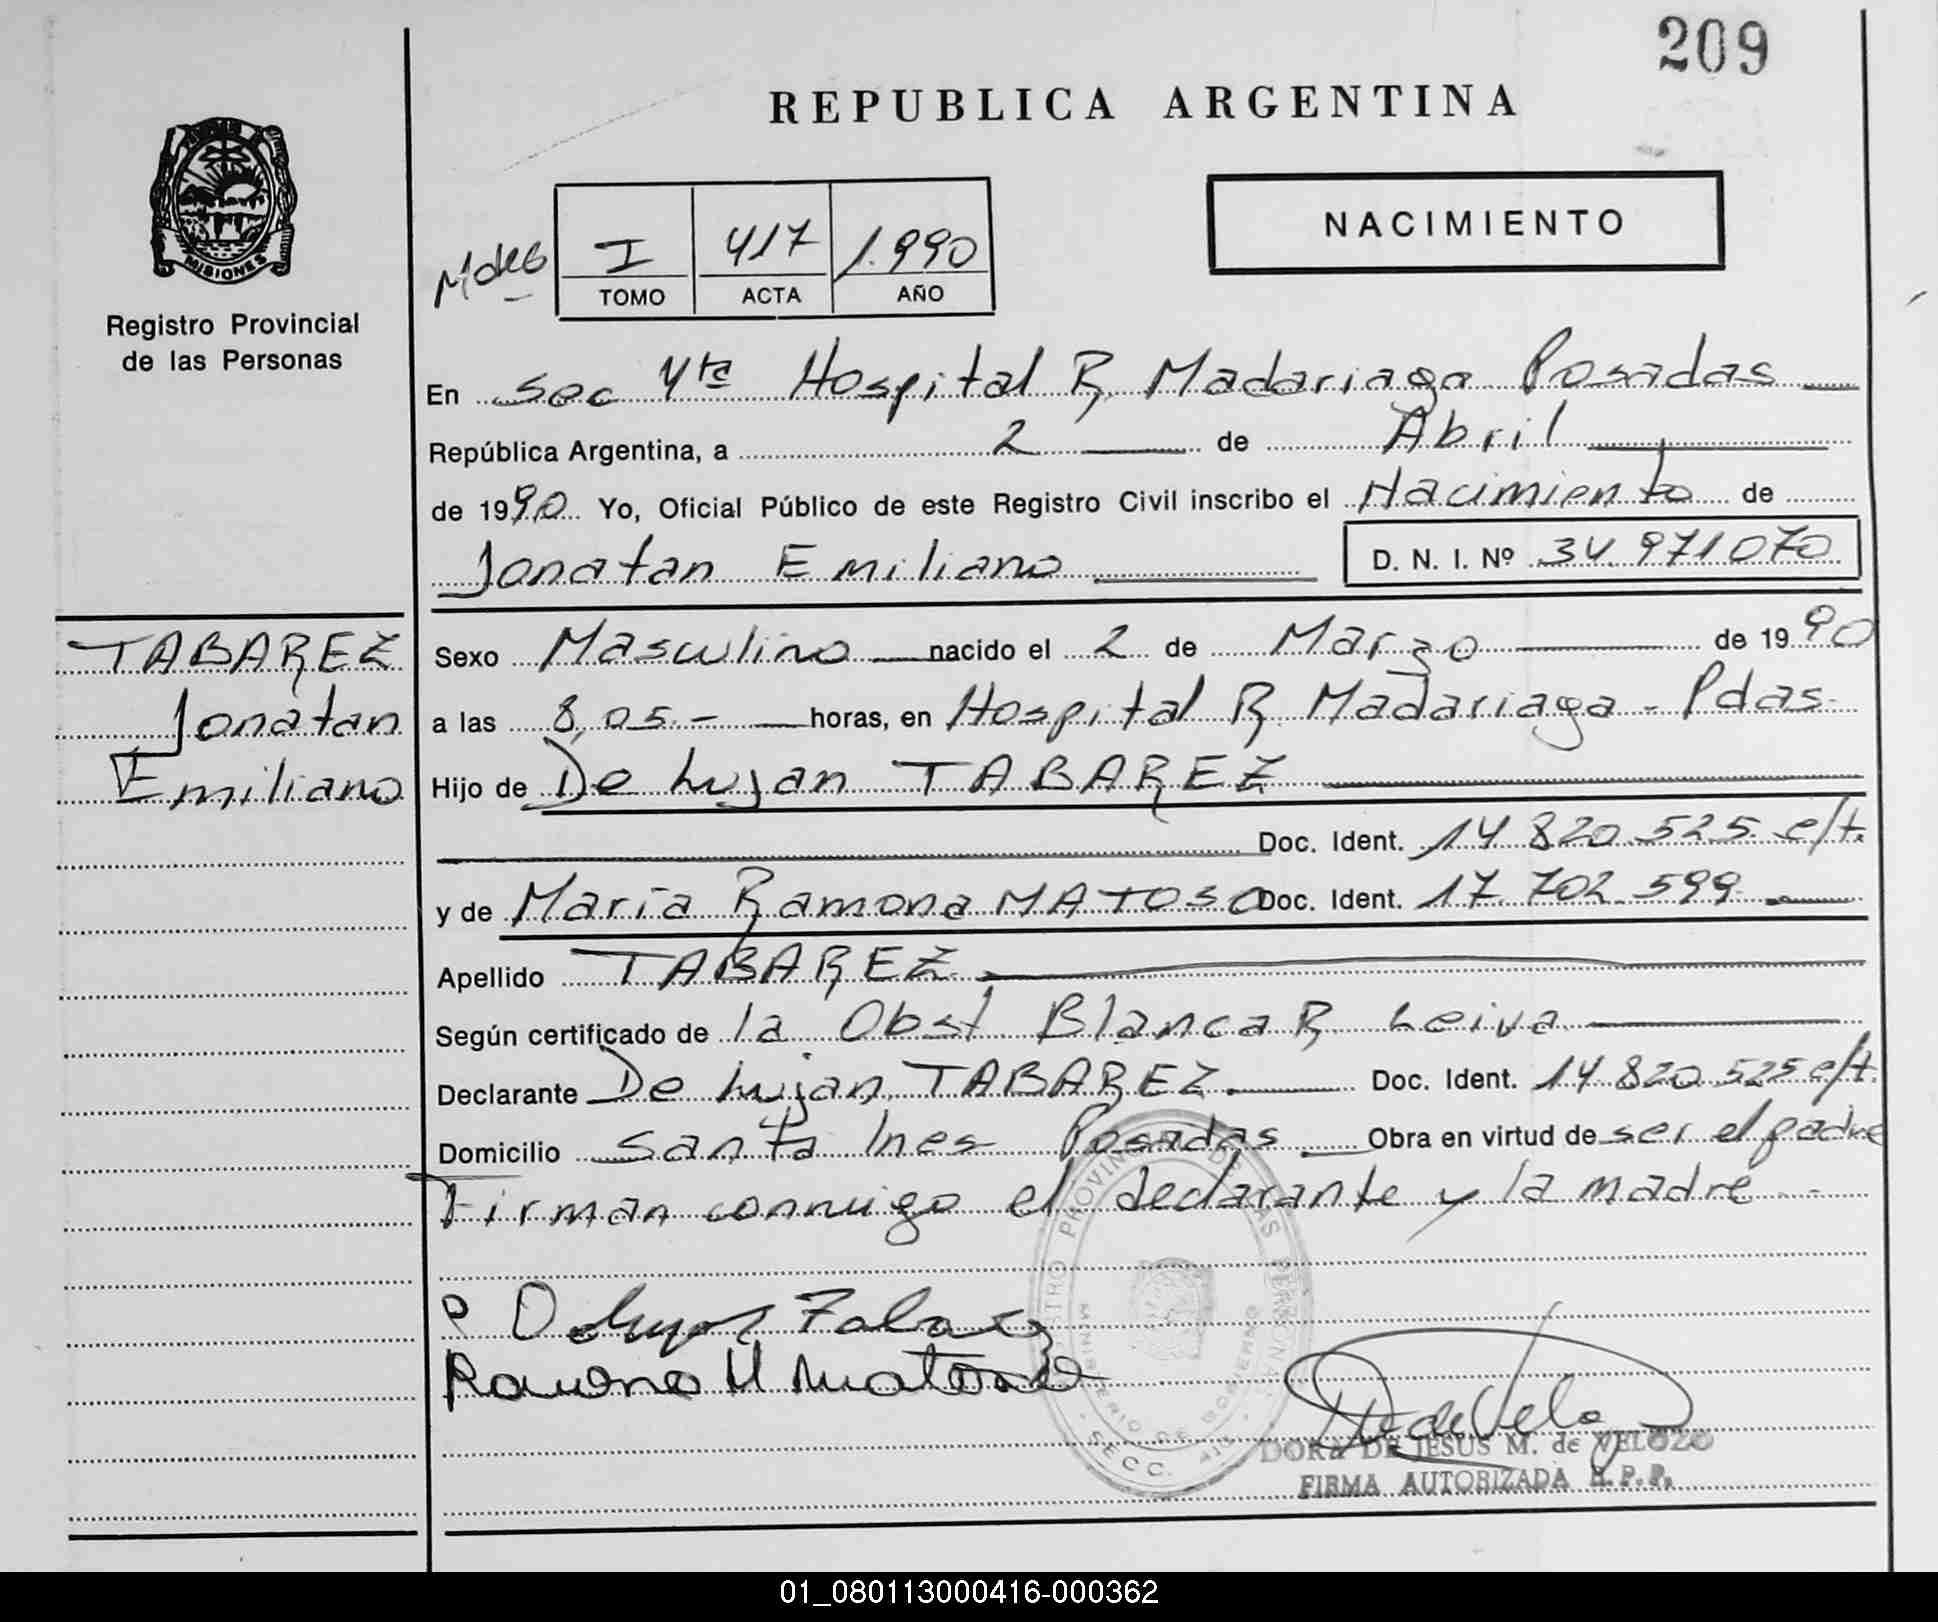 209
REPUBLICA ARGENTINA
MISIONES
Registro Provincial
de las Personas
I 417 1.990
TOMO ACTA AÑO
NACIMIENTO
En Sec 4ta Hospital R Madariaga Posadas
República Argentina, a 2 de Abril
de 1990 Yo, Oficial Público de este Registro Civil inscribo el Nacimiento de
Jonatan Emiliano D. N. I. Nº 34.971070
TABAREZ
Jonatan
Emiliano
Sexo Masculino nacido el 2 de Marzo de 1990
a las 8,05.- horas, en Hospital R Madariaga - Pdas-
Hijo de De Lujan TABAREZ
Doc. Ident. 14.820.525 e/t.
y de María Ramona MATOSO Doc. Ident. 17.702.599
Apellido TABAREZ
Según certificado de la Obst Blanca R Leiva
Declarante De Lujan TABAREZ Doc. Ident. 14.820.525 e/t.
Domicilio Santa Ines Posadas Obra en virtud de ser el padre
Firman conmigo el declarante y la madre
REGISTRO PROVINCIAL DE LAS PERSONAS
MINISTERIO DE GOBIERNO
SECC. 4ta
DORA DE JESUS M. de VELOZO
FIRMA AUTORIZADA R.P.P.
01_080113000416-000362